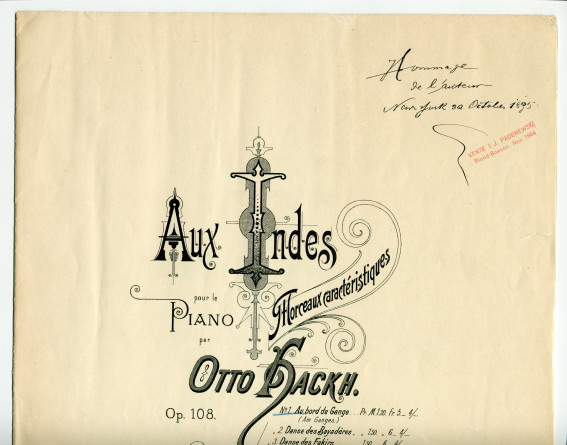 Hommage
de l'auteur
New York 30 October 1895
VENTE I. J. PADEREWSKI
Riond-Bosson, Nov 1954
Aux Indes
pour le
PIANO
Morceaux caractéristiques
par
OTTO HACKH.
Op. 108.
No 1. Au bord du Gange... Pr. M. 1.20. Fr. 5_ 4/_
(Am Ganges.)
" 2 Danse des Bayadères. " 1.50. " 6_ 4/_
" 3 Danse des Fakirs